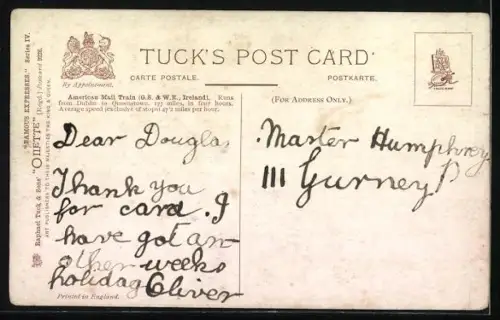 TUCK'S POST CARD
CARTE POSTALE. POSTKARTE.
By Appointment.
American Mail Train (G.S. & W.R., Ireland). Runs
from Dublin to Queenstown, 177 miles, in four hours.
Average speed (exclusive of stops) 47½ miles per hour.
Dear Douglas
Thank you
for card. I
have got an
other weeks
holiday Oliver
Printed in England.
(FOR ADDRESS ONLY.)
Master Humphrey
111 Gurney
"FAMOUS EXPRESSES." Series IV.
Raphael Tuck & Sons' "OILETTE" [Regd.] Postcard
ART PUBLISHERS TO THEIR MAJESTIES THE KING & QUEEN.